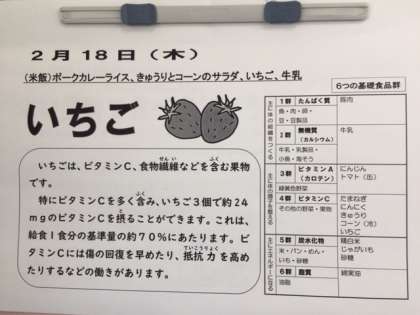 2月18日（木）
（米飯）ポークカレーライス、きゅうりとコーンのサラダ、いちご、牛乳
いちご
いちごは、ビタミンC、食物繊維などを含む果物
です。
特にビタミンCを多く含み、いちご3個で約24
mgのビタミンCを摂ることができます。これは、
給食1食分の基準量の約70％にあたります。ビ
タミンCには傷の回復を早めたり、抵抗力を高め
たりするなどの働きがあります。
6つの基礎食品群
主に体の組織をつくる
1群 たんぱく質
魚・肉・卵・
豆・豆製品
豚肉
2群 無機質
（カルシウム）
牛乳・乳製品・
小魚・海そう
牛乳
主に体の調子を整える
3群 ビタミンA
（カロテン）
緑黄色野菜
にんじん
トマト（缶）
4群 ビタミンC
その他の野菜・果物
たまねぎ
にんにく
きゅうり
コーン（冷）
いちご
主にエネルギーになる
5群 炭水化物
米・パン・めん・
いも・砂糖
精白米
じゃがいも
砂糖
6群 脂質
油脂
綿実油